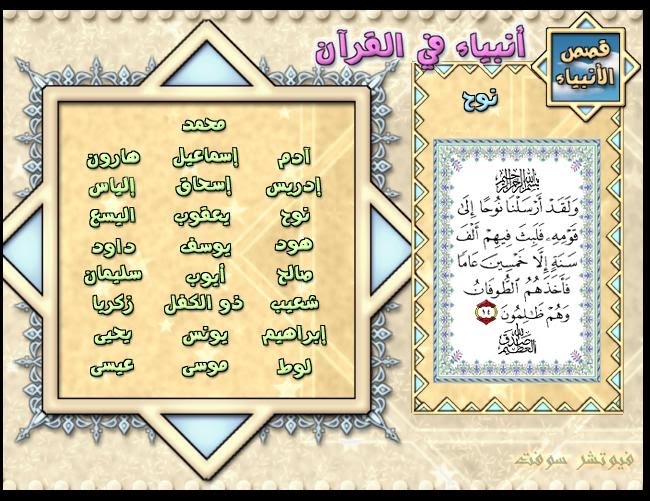 أنبياء في القرآن
قصص
الأنبياء
نوح
بسم الله الرحمن الرحيم
وَلَقَدْ أَرْسَلْنَا نُوحًا إِلَىٰ
قَوْمِهِۦ فَلَبِثَ فِيهِمْ أَلْفَ
سَنَةٍ إِلَّا خَمْسِينَ عَامًا
فَأَخَذَهُمُ ٱلطُّوفَانُ
وَهُمْ ظَٰلِمُونَ ١٤
صدق الله العظيم
محمد
آدم إسماعيل هارون
إدريس إسحاق إلياس
نوح يعقوب اليسع
هود يوسف داود
صالح أيوب سليمان
شعيب ذو الكفل زكريا
إبراهيم يونس يحيى
لوط موسى عيسى
فيوتشر سوفت